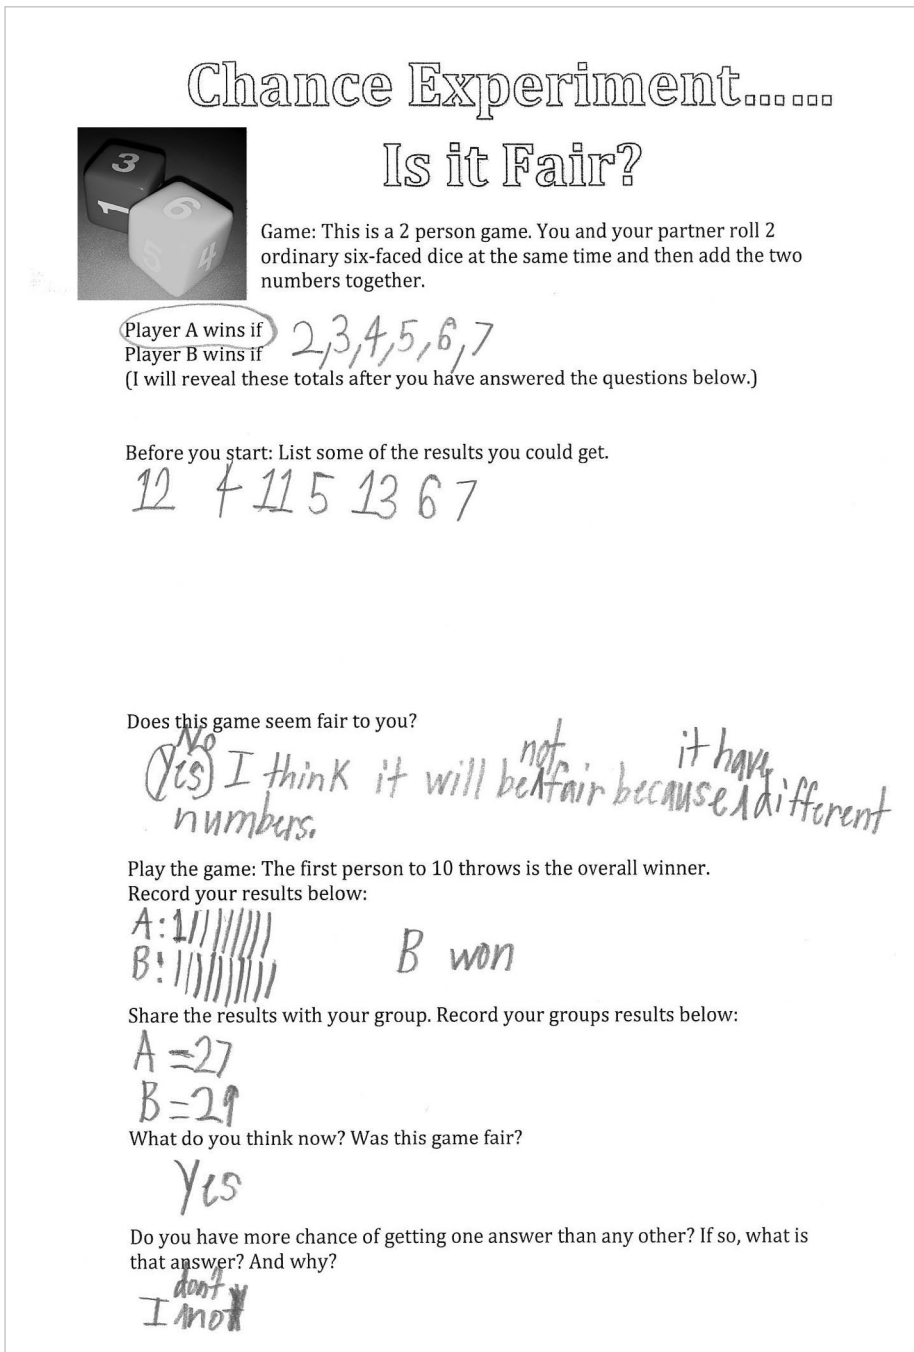 Chance Experiment......
Is it Fair?
3
1
6
5
4
Game: This is a 2 person game. You and your partner roll 2
ordinary six-faced dice at the same time and then add the two
numbers together.
Player A wins if 2,3,4,5,6,7
Player B wins if
(I will reveal these totals after you have answered the questions below.)
Before you start: List some of the results you could get.
12 4 11 5 13 6 7
Does this game seem fair to you?
No
(Yes) I think it will be not fair because it have different
numbers.
Play the game: The first person to 10 throws is the overall winner.
Record your results below:
A:
B: B won
Share the results with your group. Record your groups results below:
A =27
B =29
What do you think now? Was this game fair?
Yes
Do you have more chance of getting one answer than any other? If so, what is
that answer? And why?
I don't